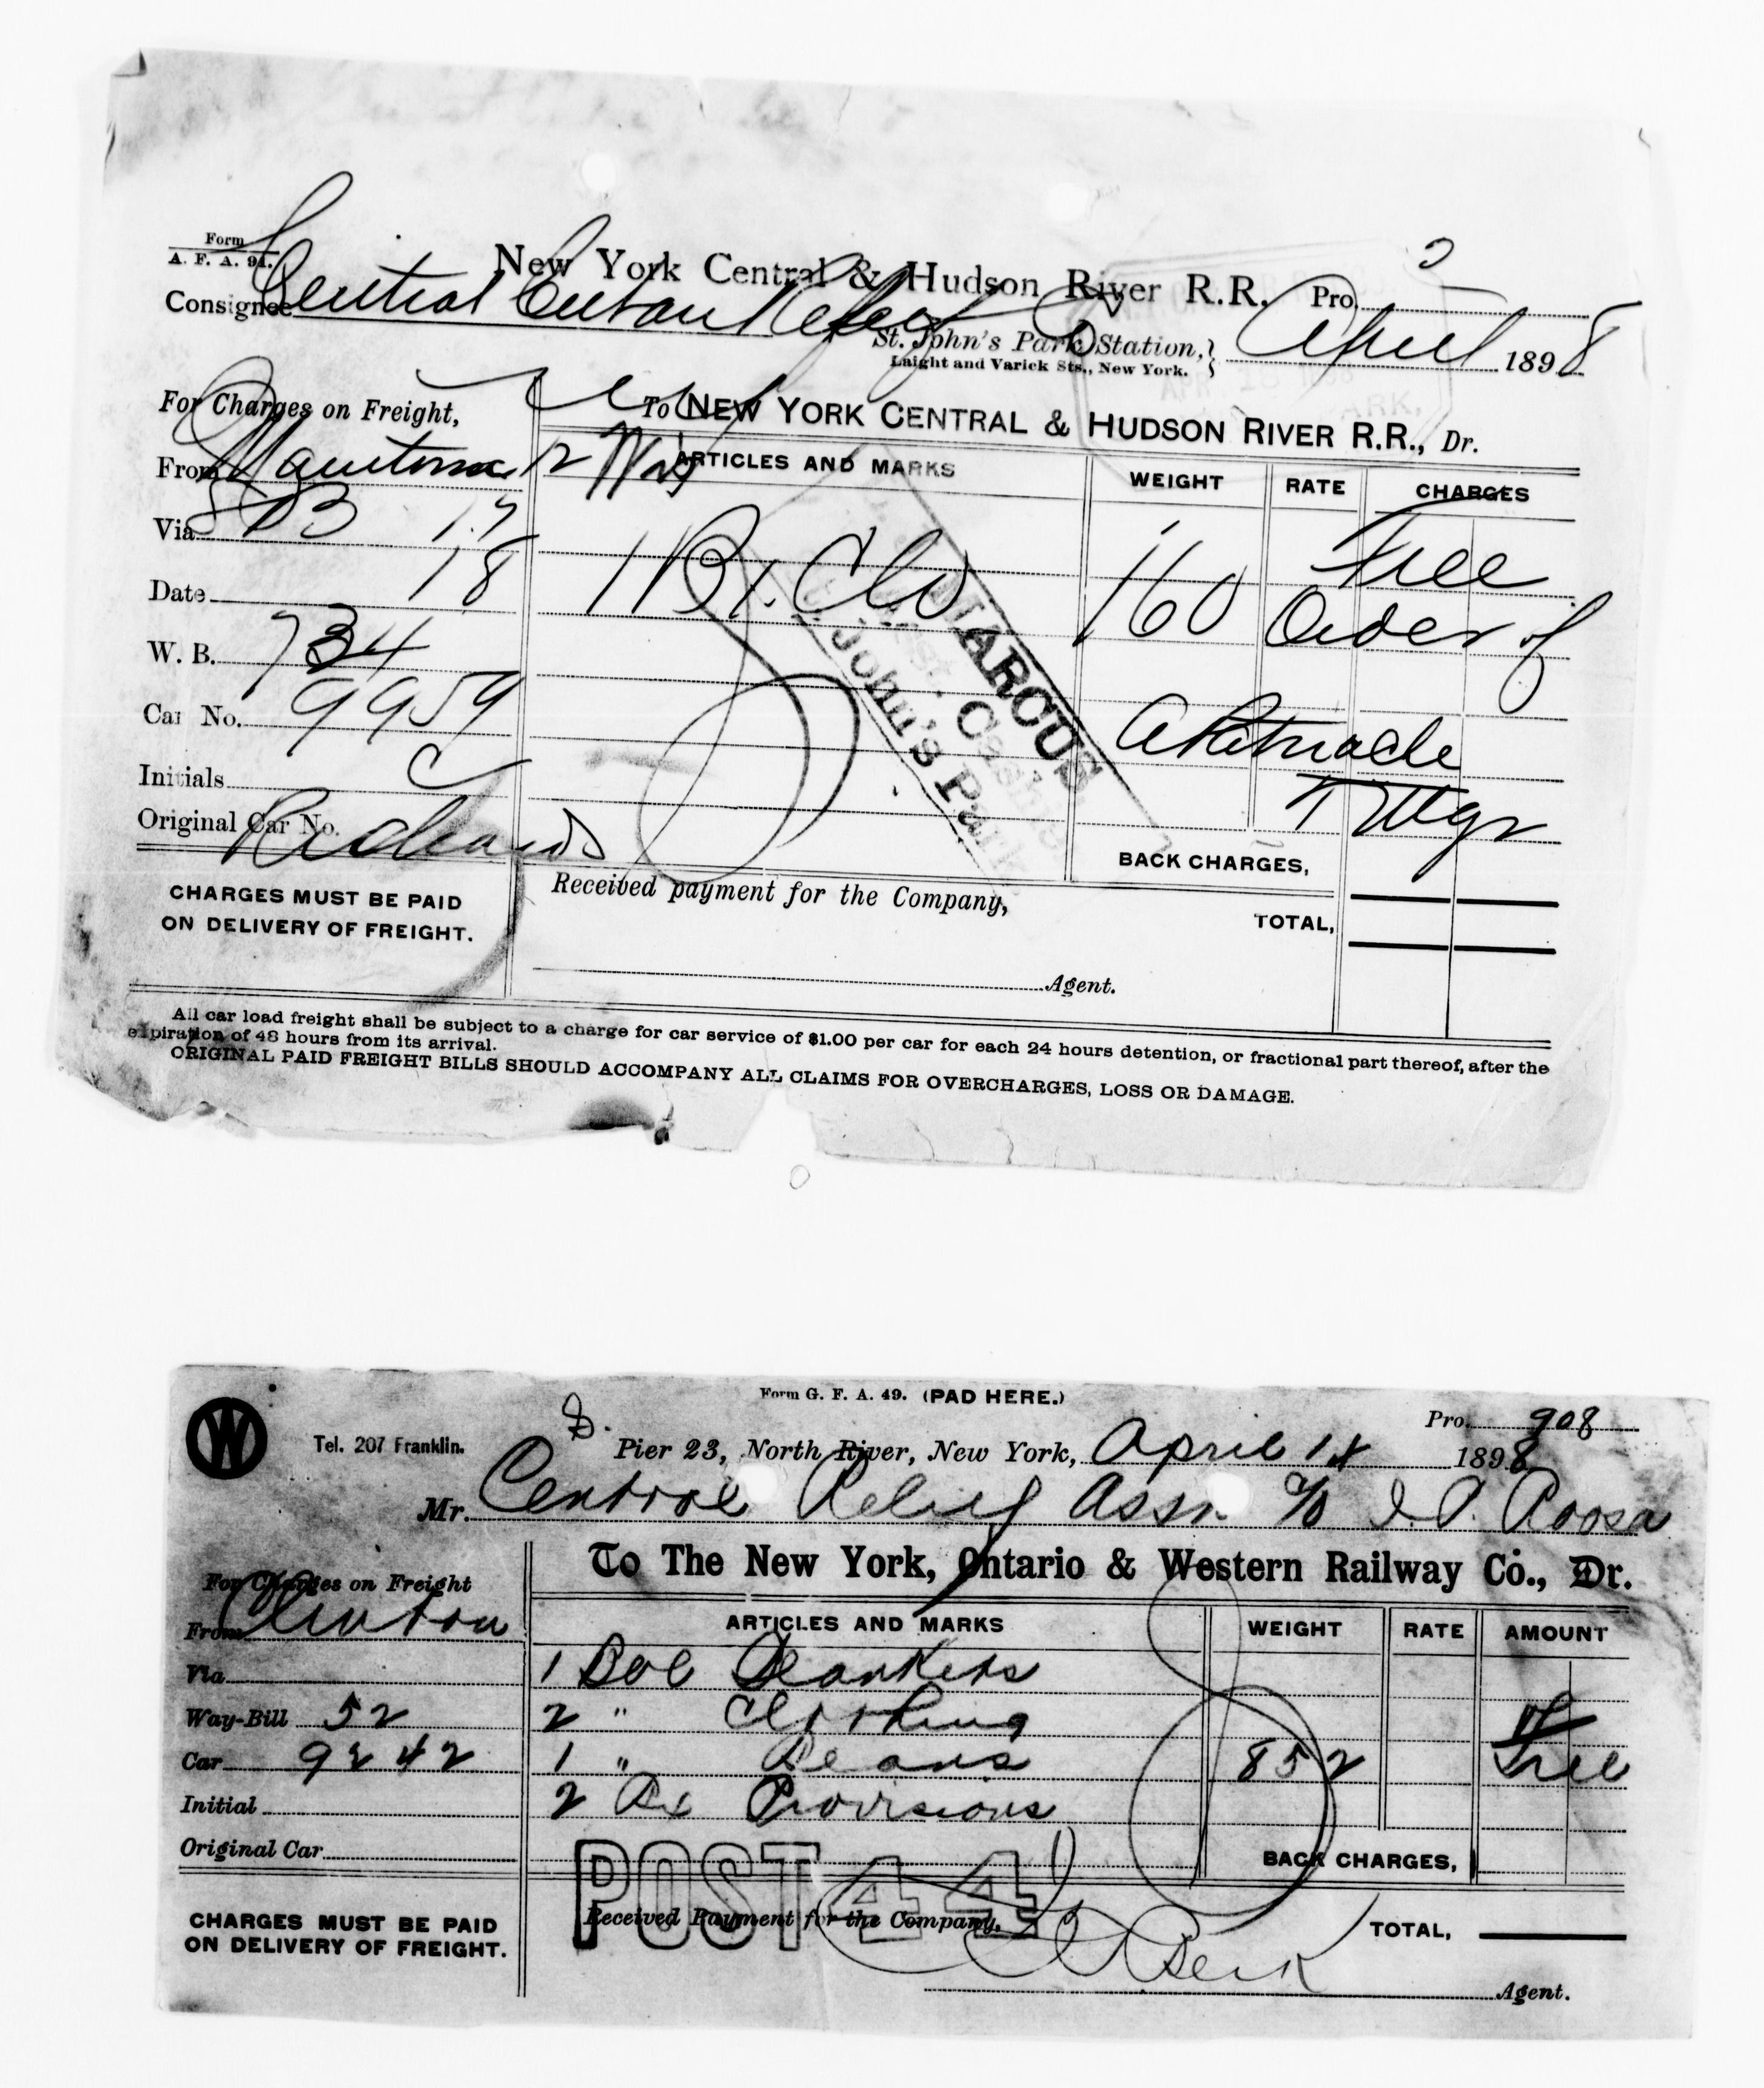 Form
A. F. A. 94.
New York Central & Hudson River R.R. Pro.
Consignee Central Cuban Relief Co
St. John's Park Station, April 1898
Laight and Varick Sts., New York.
For Charges on Freight,
To NEW YORK CENTRAL & HUDSON RIVER R.R., Dr.
From Manitowoc Wis
ARTICLES AND MARKS WEIGHT RATE CHARGES
Via
1 Bx. Clo 160 Free
Date 18 Order of
W. B. 734
Car No. 9959
Initials C
T Mgr
Original Car No. Richards
BACK CHARGES,
CHARGES MUST BE PAID
ON DELIVERY OF FREIGHT.
Received payment for the Company,
TOTAL,
Agent.
MARCUS
St. John's Park
All car load freight shall be subject to a charge for car service of $1.00 per car for each 24 hours detention, or fractional part thereof, after the
expiration of 48 hours from its arrival.
ORIGINAL PAID FREIGHT BILLS SHOULD ACCOMPANY ALL CLAIMS FOR OVERCHARGES, LOSS OR DAMAGE.
Form G. F. A. 49. (PAD HERE.)
W
Tel. 207 Franklin.
Pro. 908
Pier 23, North River, New York, April 14 1898
Mr. Central Relief Assn. c/o I. P. Roosa
To The New York, Ontario & Western Railway Co., Dr.
For Charges on Freight
From Clinton
ARTICLES AND MARKS WEIGHT RATE AMOUNT
Via
1 Bbl Blankets
Way-Bill 52
2 " Clothing
Car 9242
1 " Beans 852 Free
Initial
2 Bx Provisions
Original Car
BACK CHARGES,
POST 44
CHARGES MUST BE PAID
ON DELIVERY OF FREIGHT.
Received Payment for the Company,
TOTAL,
Agent.